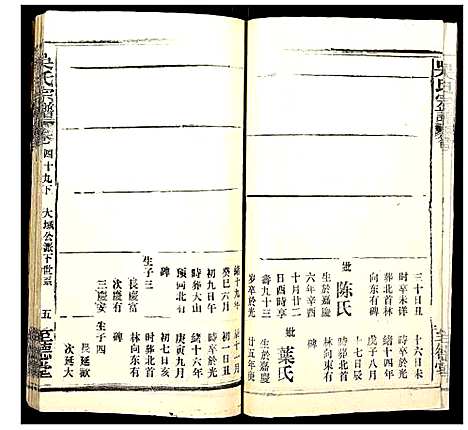 吳氏宗譜
三十日丑
时卒未详
墓北首林
向东有碑
妣陈氏
生於嘉慶
六年辛酉
十月廿二
日酉時享
壽九十三
岁卒於光
十六日未
時卒於光
緒十四年
戊子八月
十七日辰
時葬北首
林向東有
碑
妣葉氏
生於嘉慶
廿五年庚
至德堂
吳氏宗譜
卷四十九下
大城公派下世系
五
緒十九年
癸巳六月
初九日午
時葬大山
頭向北有
碑
生子三
長慶富
次慶有
三慶安
辰十一月
初一日丑
時卒於光
緒十六年
庚寅九月
初七日亥
時葬北首
林向东有
碑
生子四
長延歡
次延大
至德堂